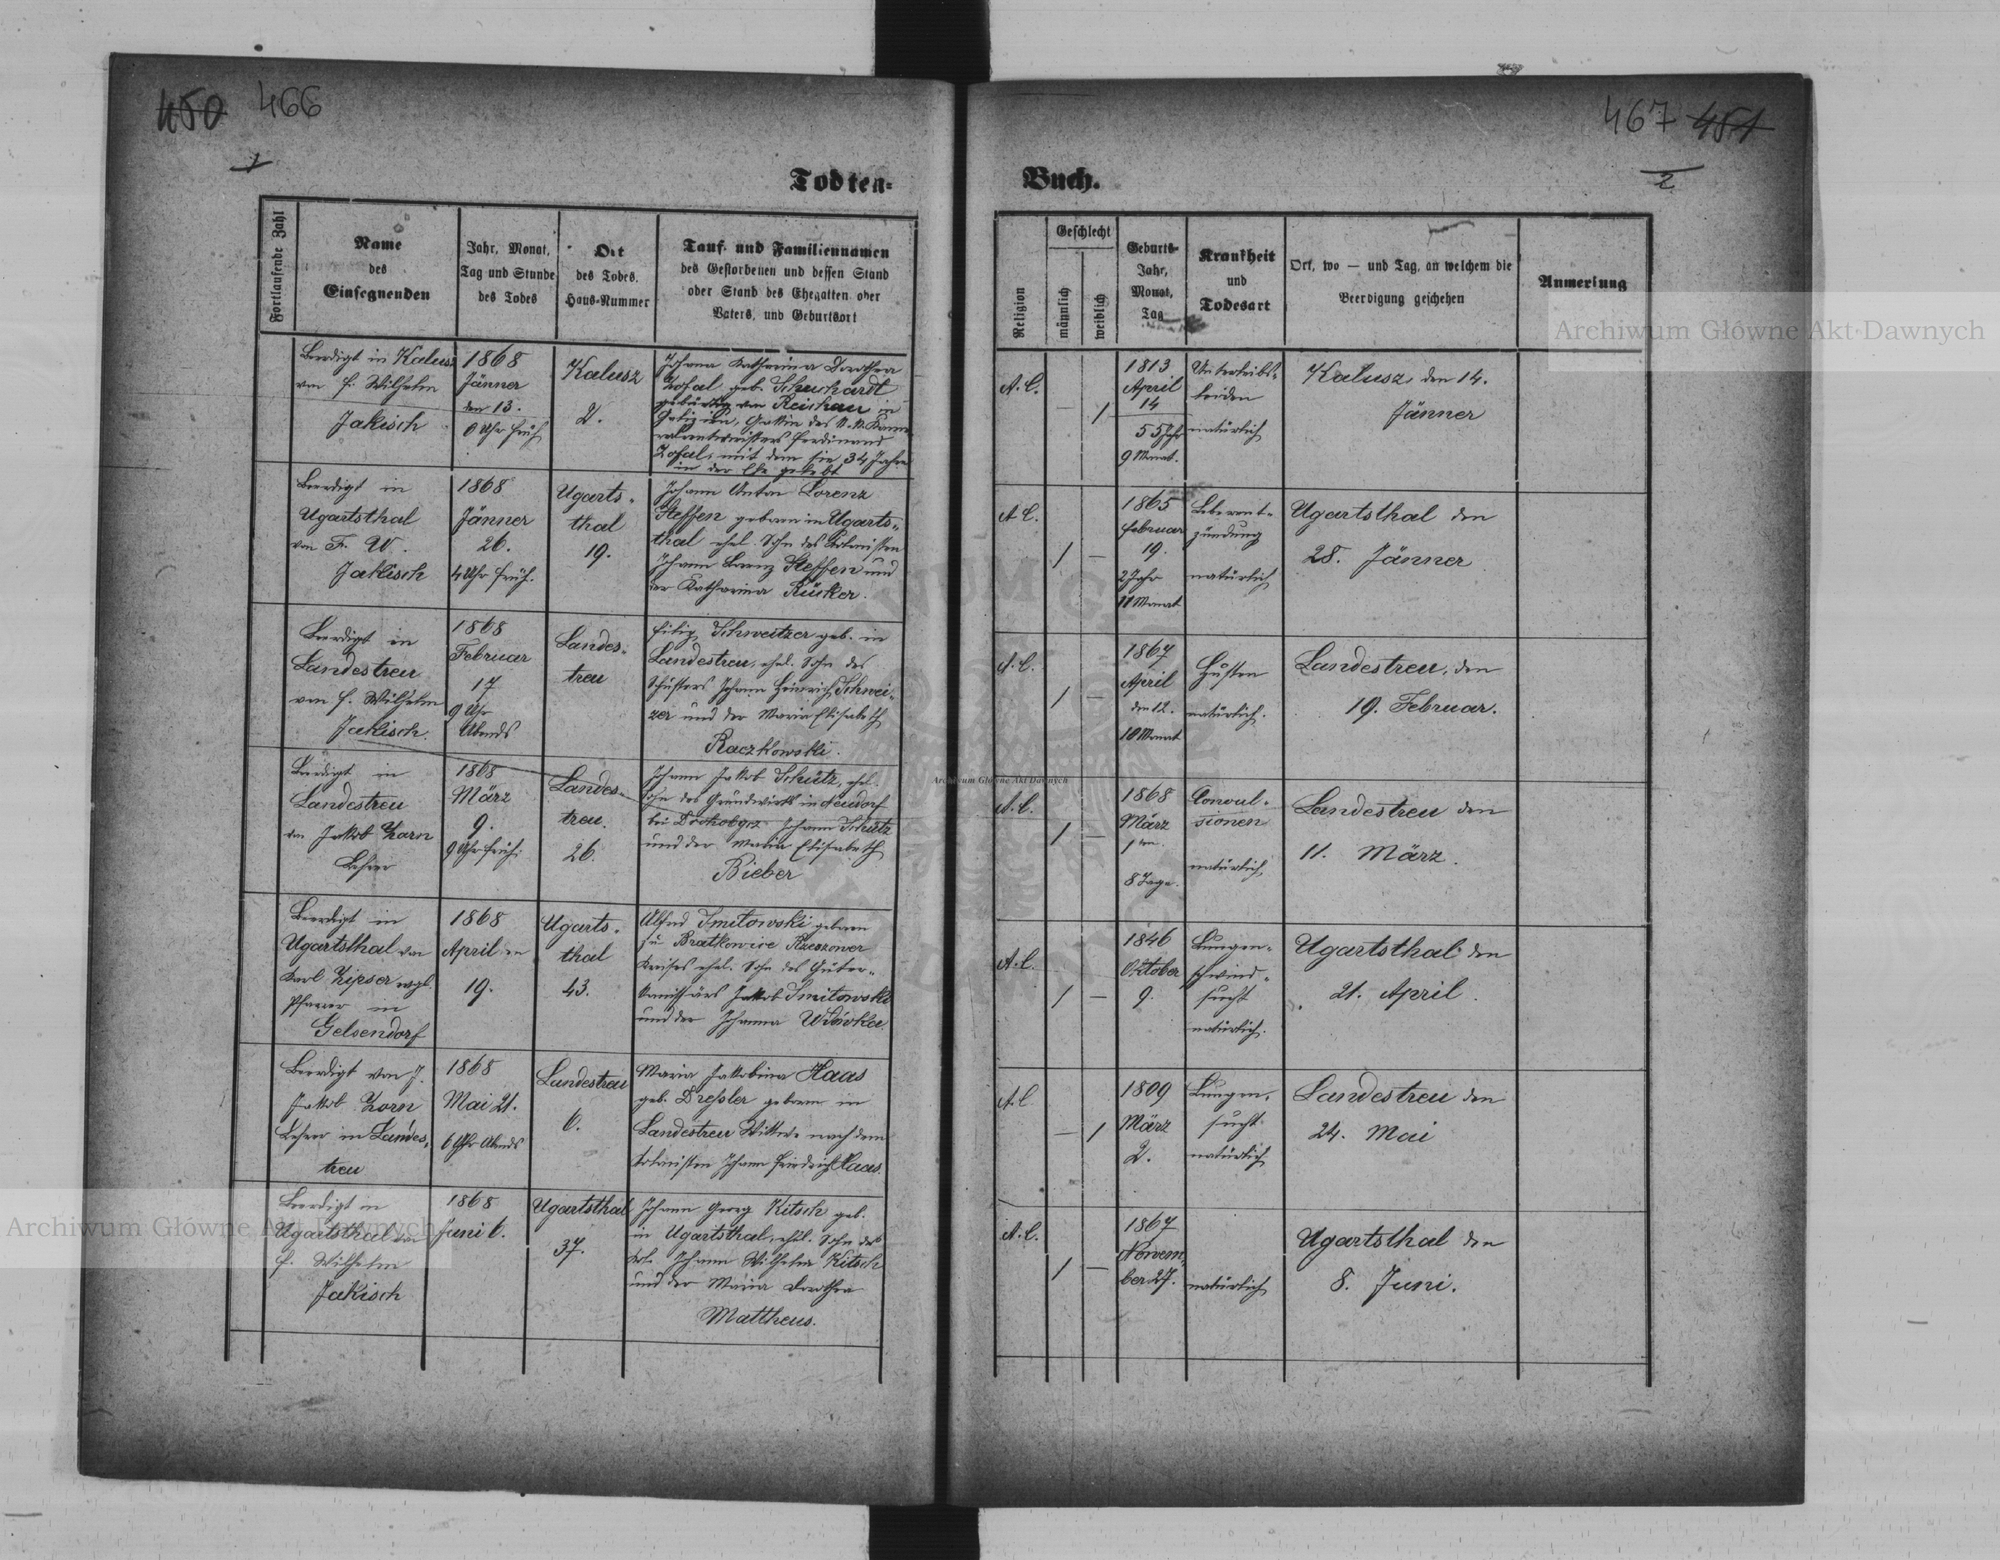 450 466
467 451
1
2
Todten-
Buch.
Fortlaufende Zahl
Name
des
Einsegnenden
Jahr, Monat,
Tag und Stunde
des Todes
Ort
des Todes.
Haus-Nummer
Tauf- und Familiennamen
des Gestorbenen und dessen Stand
oder Stand des Ehegatten oder
Vaters, und Geburtsort
Religion
Geschlecht
männlich
weiblich
Geburts-
Jahr,
Monat,
Tag
Krankheit
und
Todesart
Ort, wo — und Tag, an welchem die
Beerdigung geschehen
Anmerkung
Beerdigt in Kalusz
von F. Wilhelm
Jakisch
1868
Jänner
den 13.
6 Uhr früh
Kalusz
2.
Johana Katharina Dorothea
Zofal geb. Schuchardt
gebürtig von Reichau in
Galizien, Gattin des K. K. Kame-
ralamtsdieners Ferdinand
Zofal, mit dem sie 34 Jahre
in der Ehe gelebt
A. C.
— 1
1813
April
14
55 Jahr
9 Monat.
Unterleibs-
leiden
natürlich
Kalusz, den 14.
Jänner
Beerdigt in
Ugartsthal
von F. W.
Jakisch
1868
Jänner
26.
4 Uhr früh.
Ugarts-
thal
19.
Johann Anton Lorenz
Steffen geboren in Ugarts-
thal ehel. Sohn des Kolonisten
Johann Lorenz Steffen und
der Katharina Rücker.
A C.
1 —
1865
Februar
19.
2 Jahr
11 Monat
Leberent-
zündung
natürlich
Ugartsthal den
28. Jänner
Beerdigt in
Landestreu
von F. Wilhelm
Jakisch.
1868
Februar
17
9 Uhr
Abends
Landes-
treu
Filip Schweitzer geb. in
Landestreu, ehel. Sohn des
Schusters Johann Heinrich Schwei-
zer und der Maria Elisabeth
Raczkowski.
A. C.
1 —
1867
April
den 12.
10 Monat
Husten
natürlich.
Landestreu, den
19. Februar.
Beerdigt in
Landestreu
von Jakob Zorn
Lehrer
1868
März
9.
9 Uhr früh.
Landes-
treu.
26.
Johann Jakob Schütz, ehel.
Sohn des Grundwirths in Neudorf
bei Johann Schütz
und der Maria Elisabeth
Bieber
A. C.
1 —
1868
März
1 ten
8 Tage.
Convul-
sionen
natürlich
Landestreu den
11. März.
Beerdigt in
Ugartsthal von
Karl Zipser evgl.
Pfarrer in
Gelsendorf
1868
April den
19.
Ugarts-
thal
43.
Alfred Smitowski geboren
zu Bratkowice Rzeszower
Kreises ehel. Sohn des Güter-
Jakob Smitowski
und der Johanna Wiówka
A. C.
1 —
1846
Oktober
9.
Lungen-
schwind-
sucht
natürlich.
Ugartsthal den
21. April.
Beerdigt von J.
Jakob Zorn
Lehrer in Landes-
treu
1868
Mai 21.
6 Uhr Abends
Landestreu
6.
Maria Jakobina Haas
geb. Dreßler geboren in
Landestreu Wittwe nach dem
Kolonisten Johann Friedrich Haas.
A. C.
— 1
1809
März
2.
Lungen-
sucht
natürlich
Landestreu den
24. Mai
Beerdigt in
Ugartsthal von
F. Wilhelm
Jakisch
1868
Juni 6.
Ugartsthal
37.
Johann Georg Kitsch geb.
in Ugartsthal, ehel. Sohn des
Kol. Johann Wilhelm Kitsch
und der Maria Dorothea
Mattheus.
A. C.
1 —
1867
Novem-
ber 27.
natürlich
Ugartsthal den
8. Juni.
Archiwum Główne Akt Dawnych
Archiwum Główne Akt Dawnych
Archiwum Główne Akt Dawnych